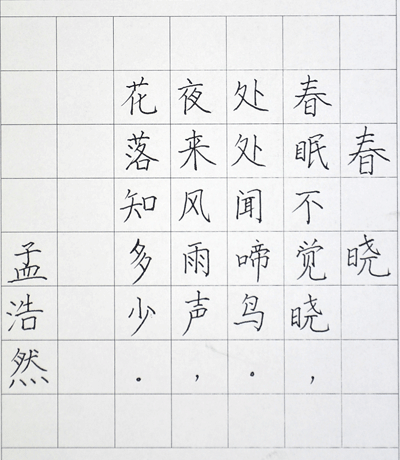 春晓
春眠不觉晓，
处处闻啼鸟。
夜来风雨声，
花落知多少。
孟浩然